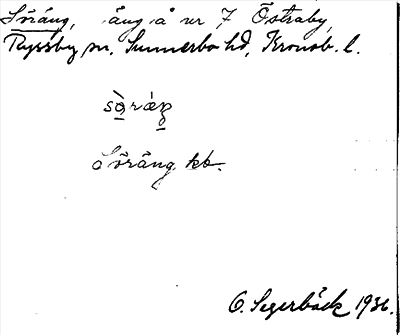 Söräng, äng å nr 7 Östraby,
Ryssby sn, Sunnerbo hd, Kronob. l.
Söräng kb.
O. Segerbäck 1936.